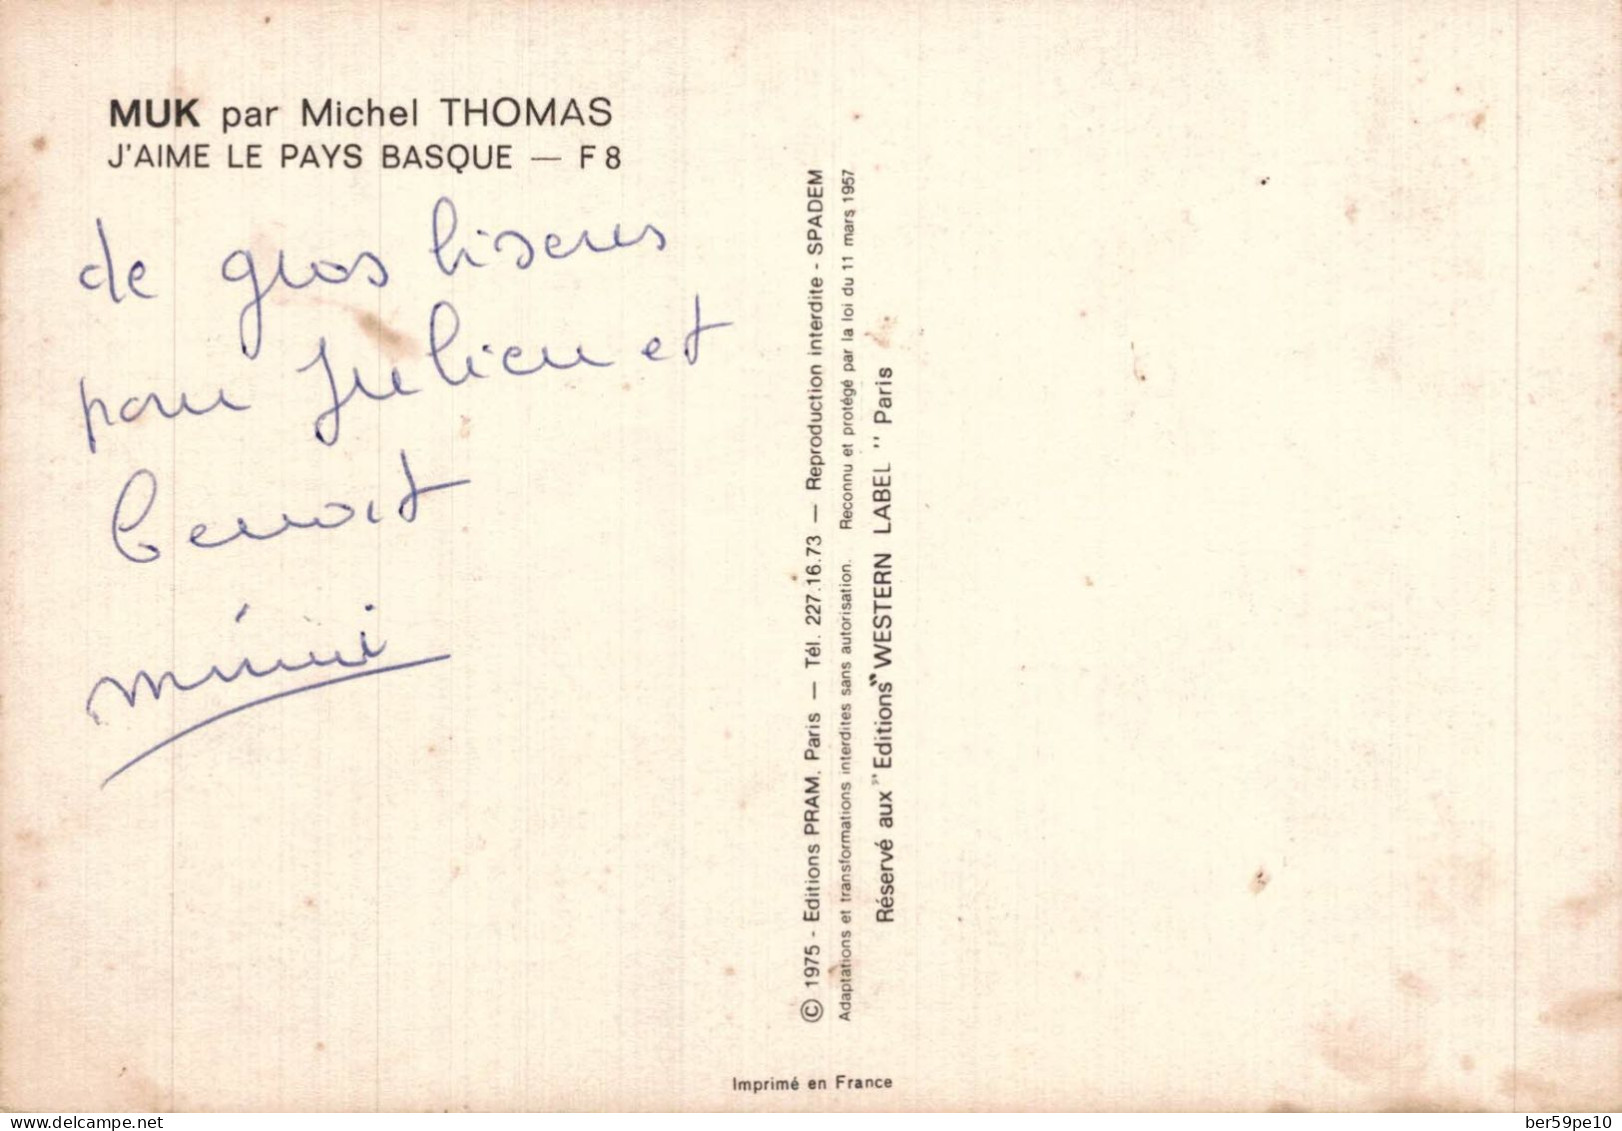 MUK par Michel THOMAS
J'AIME LE PAYS BASQUE — F8
de gros biseus
pour Julien et
Benoit
mimi
© 1975 - Editions PRAM, Paris — Tél. 227.16.73 — Reproduction interdite - SPADEM
Adaptations et transformations interdites sans autorisation. Reconnu et protégé par la loi du 11 mars 1957
Réservé aux "Editions "WESTERN LABEL" Paris
Imprimé en France
delcampe.net
ber59pe10